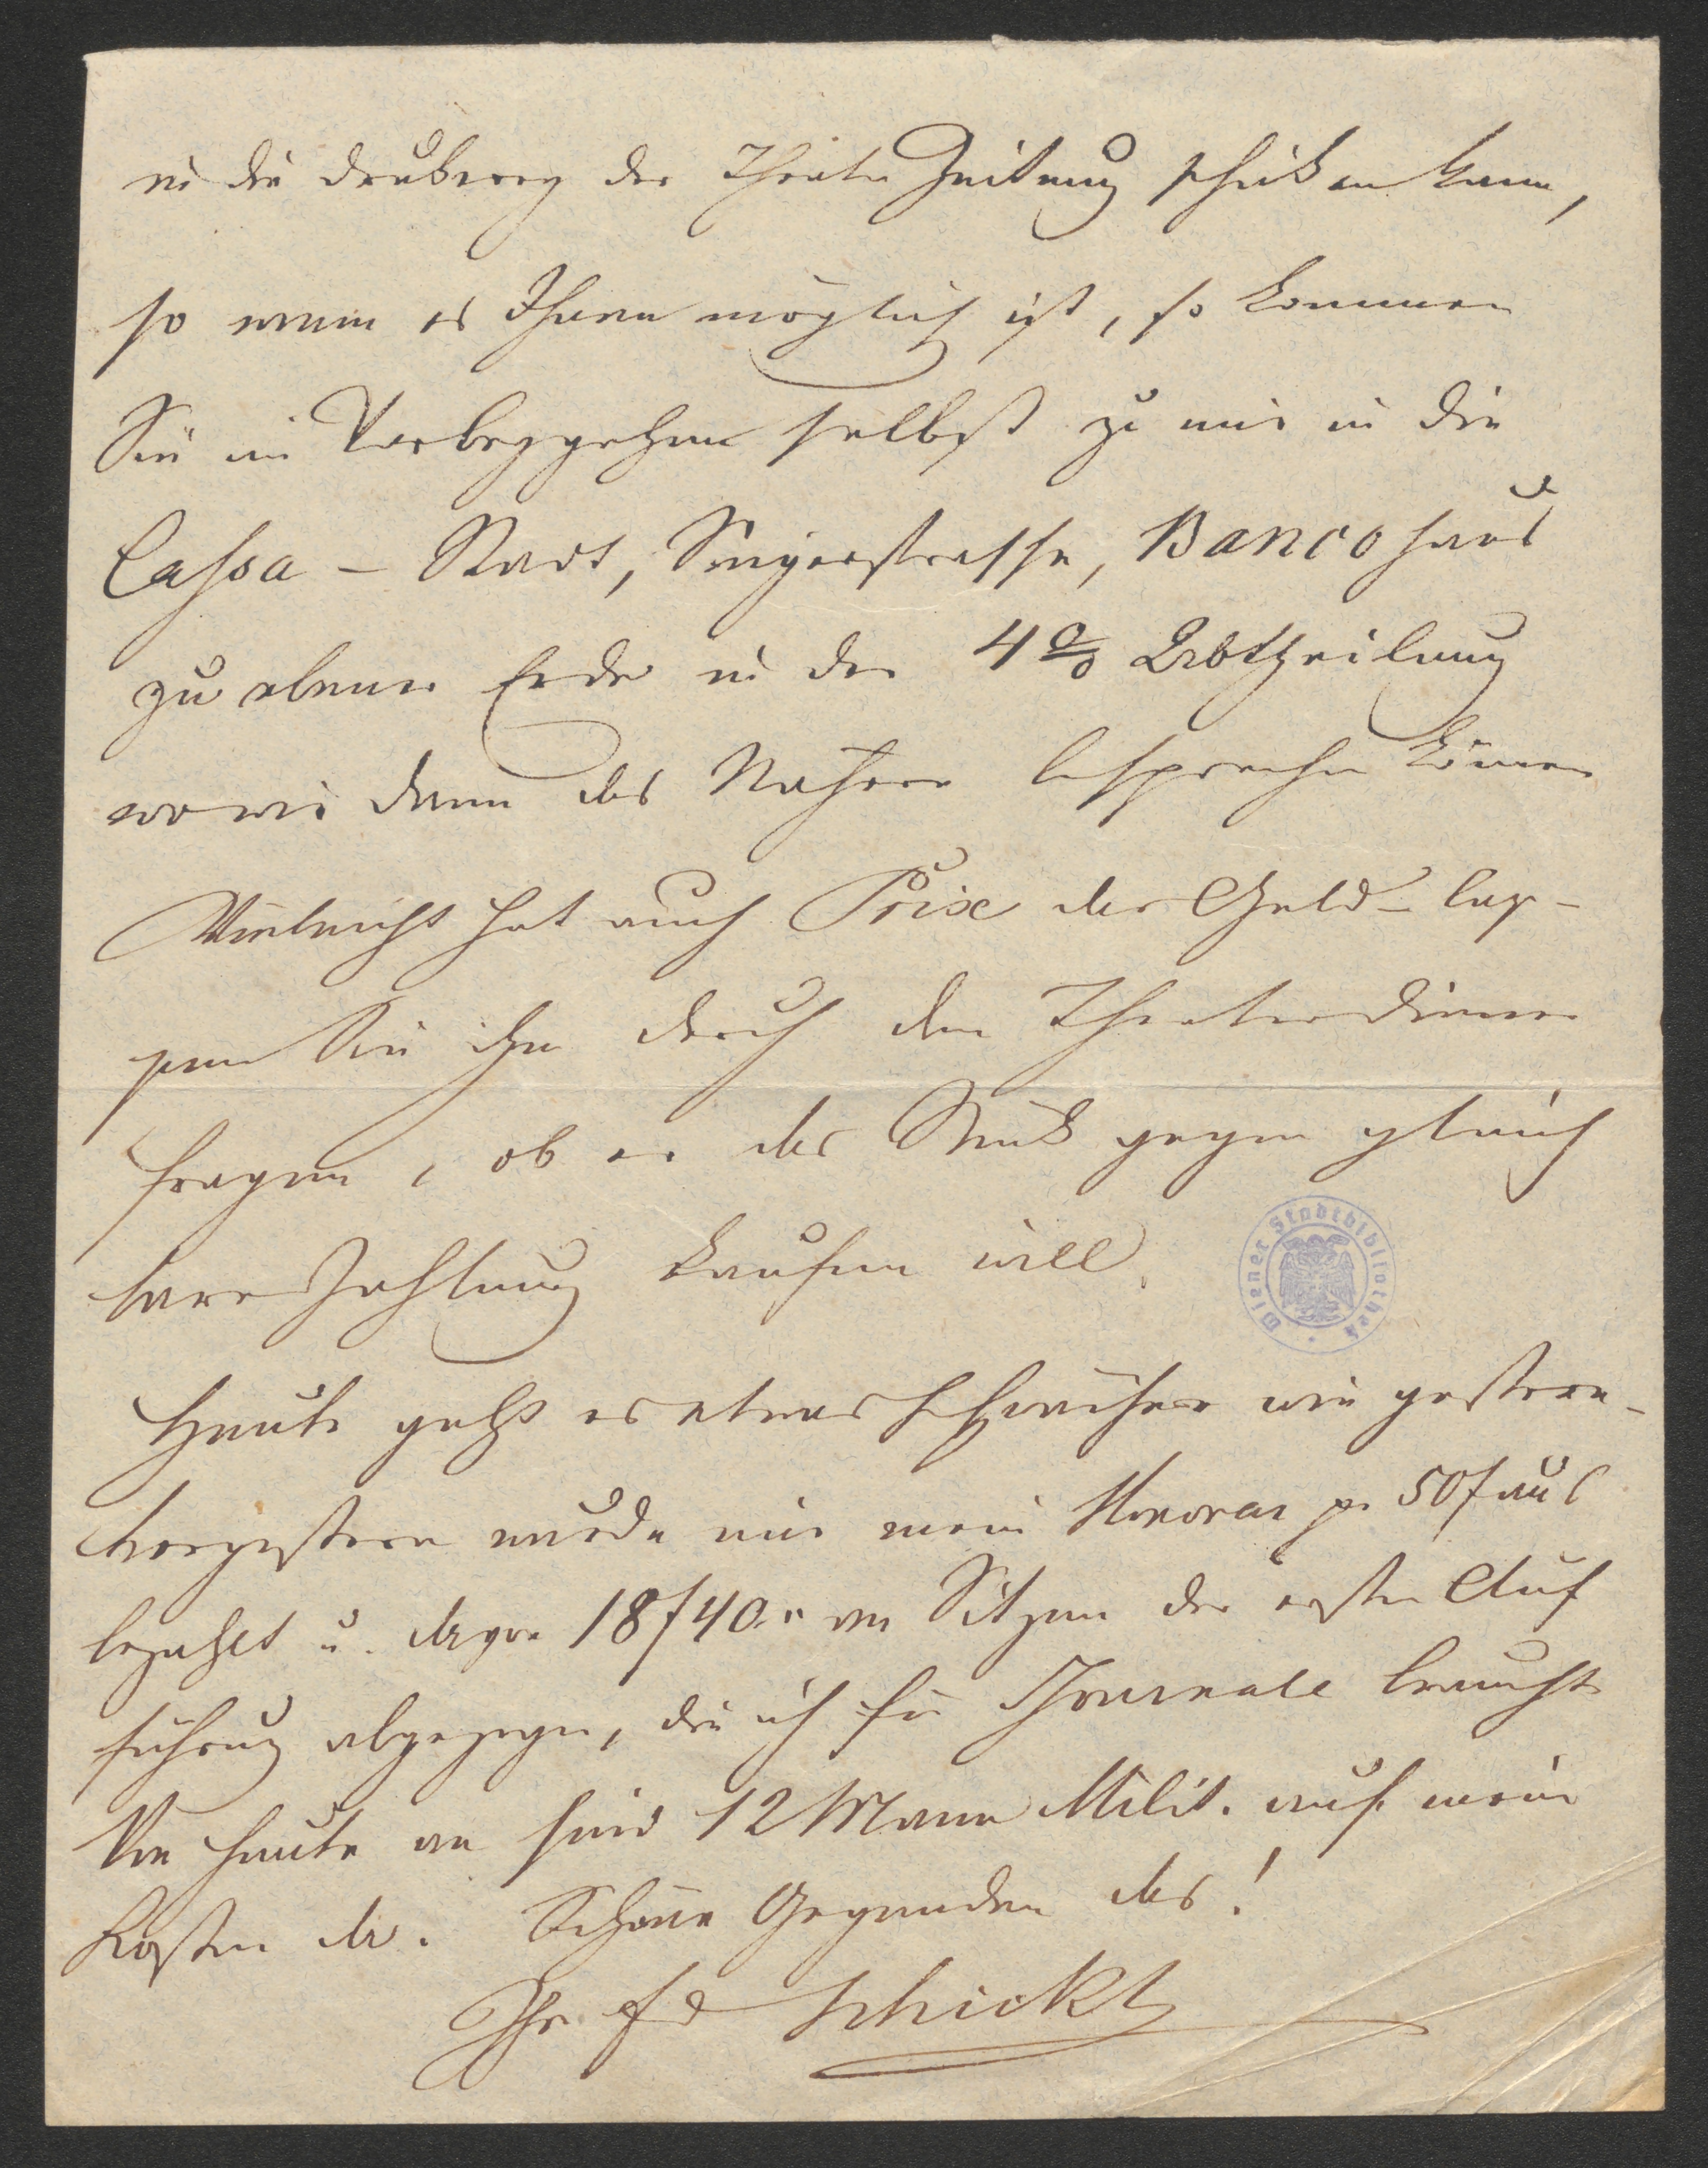 in die Drukerey der Theater Zeitung schiken kann,
so wenn es Ihnen möglich ist, so kommen
Sie im Vorbeygehen selbst zu mir in die
Cassa – Stadt, Singerstrasse, Bancohaus
zu ebener Erde in der 4% Abtheilung
wo wir dann das Nähere besprechen könen
Vieleicht hat auch Prix das Geld – las-
sen Sie ihn durch den Theaterdiener
fragen, ob er das Stück gegen gleich
bare Zahlung kaufen will.
Heute geht es etwas schwächer wie gestern –
Vorgestern wurde mir mein Honorar pr 50f aus
bezahlt u. davon 18f40.x an Sitzen der ersten Auf
führung abgezogen, die ich für Journale brauchte
Von heute an sind 12 Mann Milit. auf meine
Kosten da. Schöne Gegenden das!
Ihr Fd Schickh
Wiener Stadtbibliothek